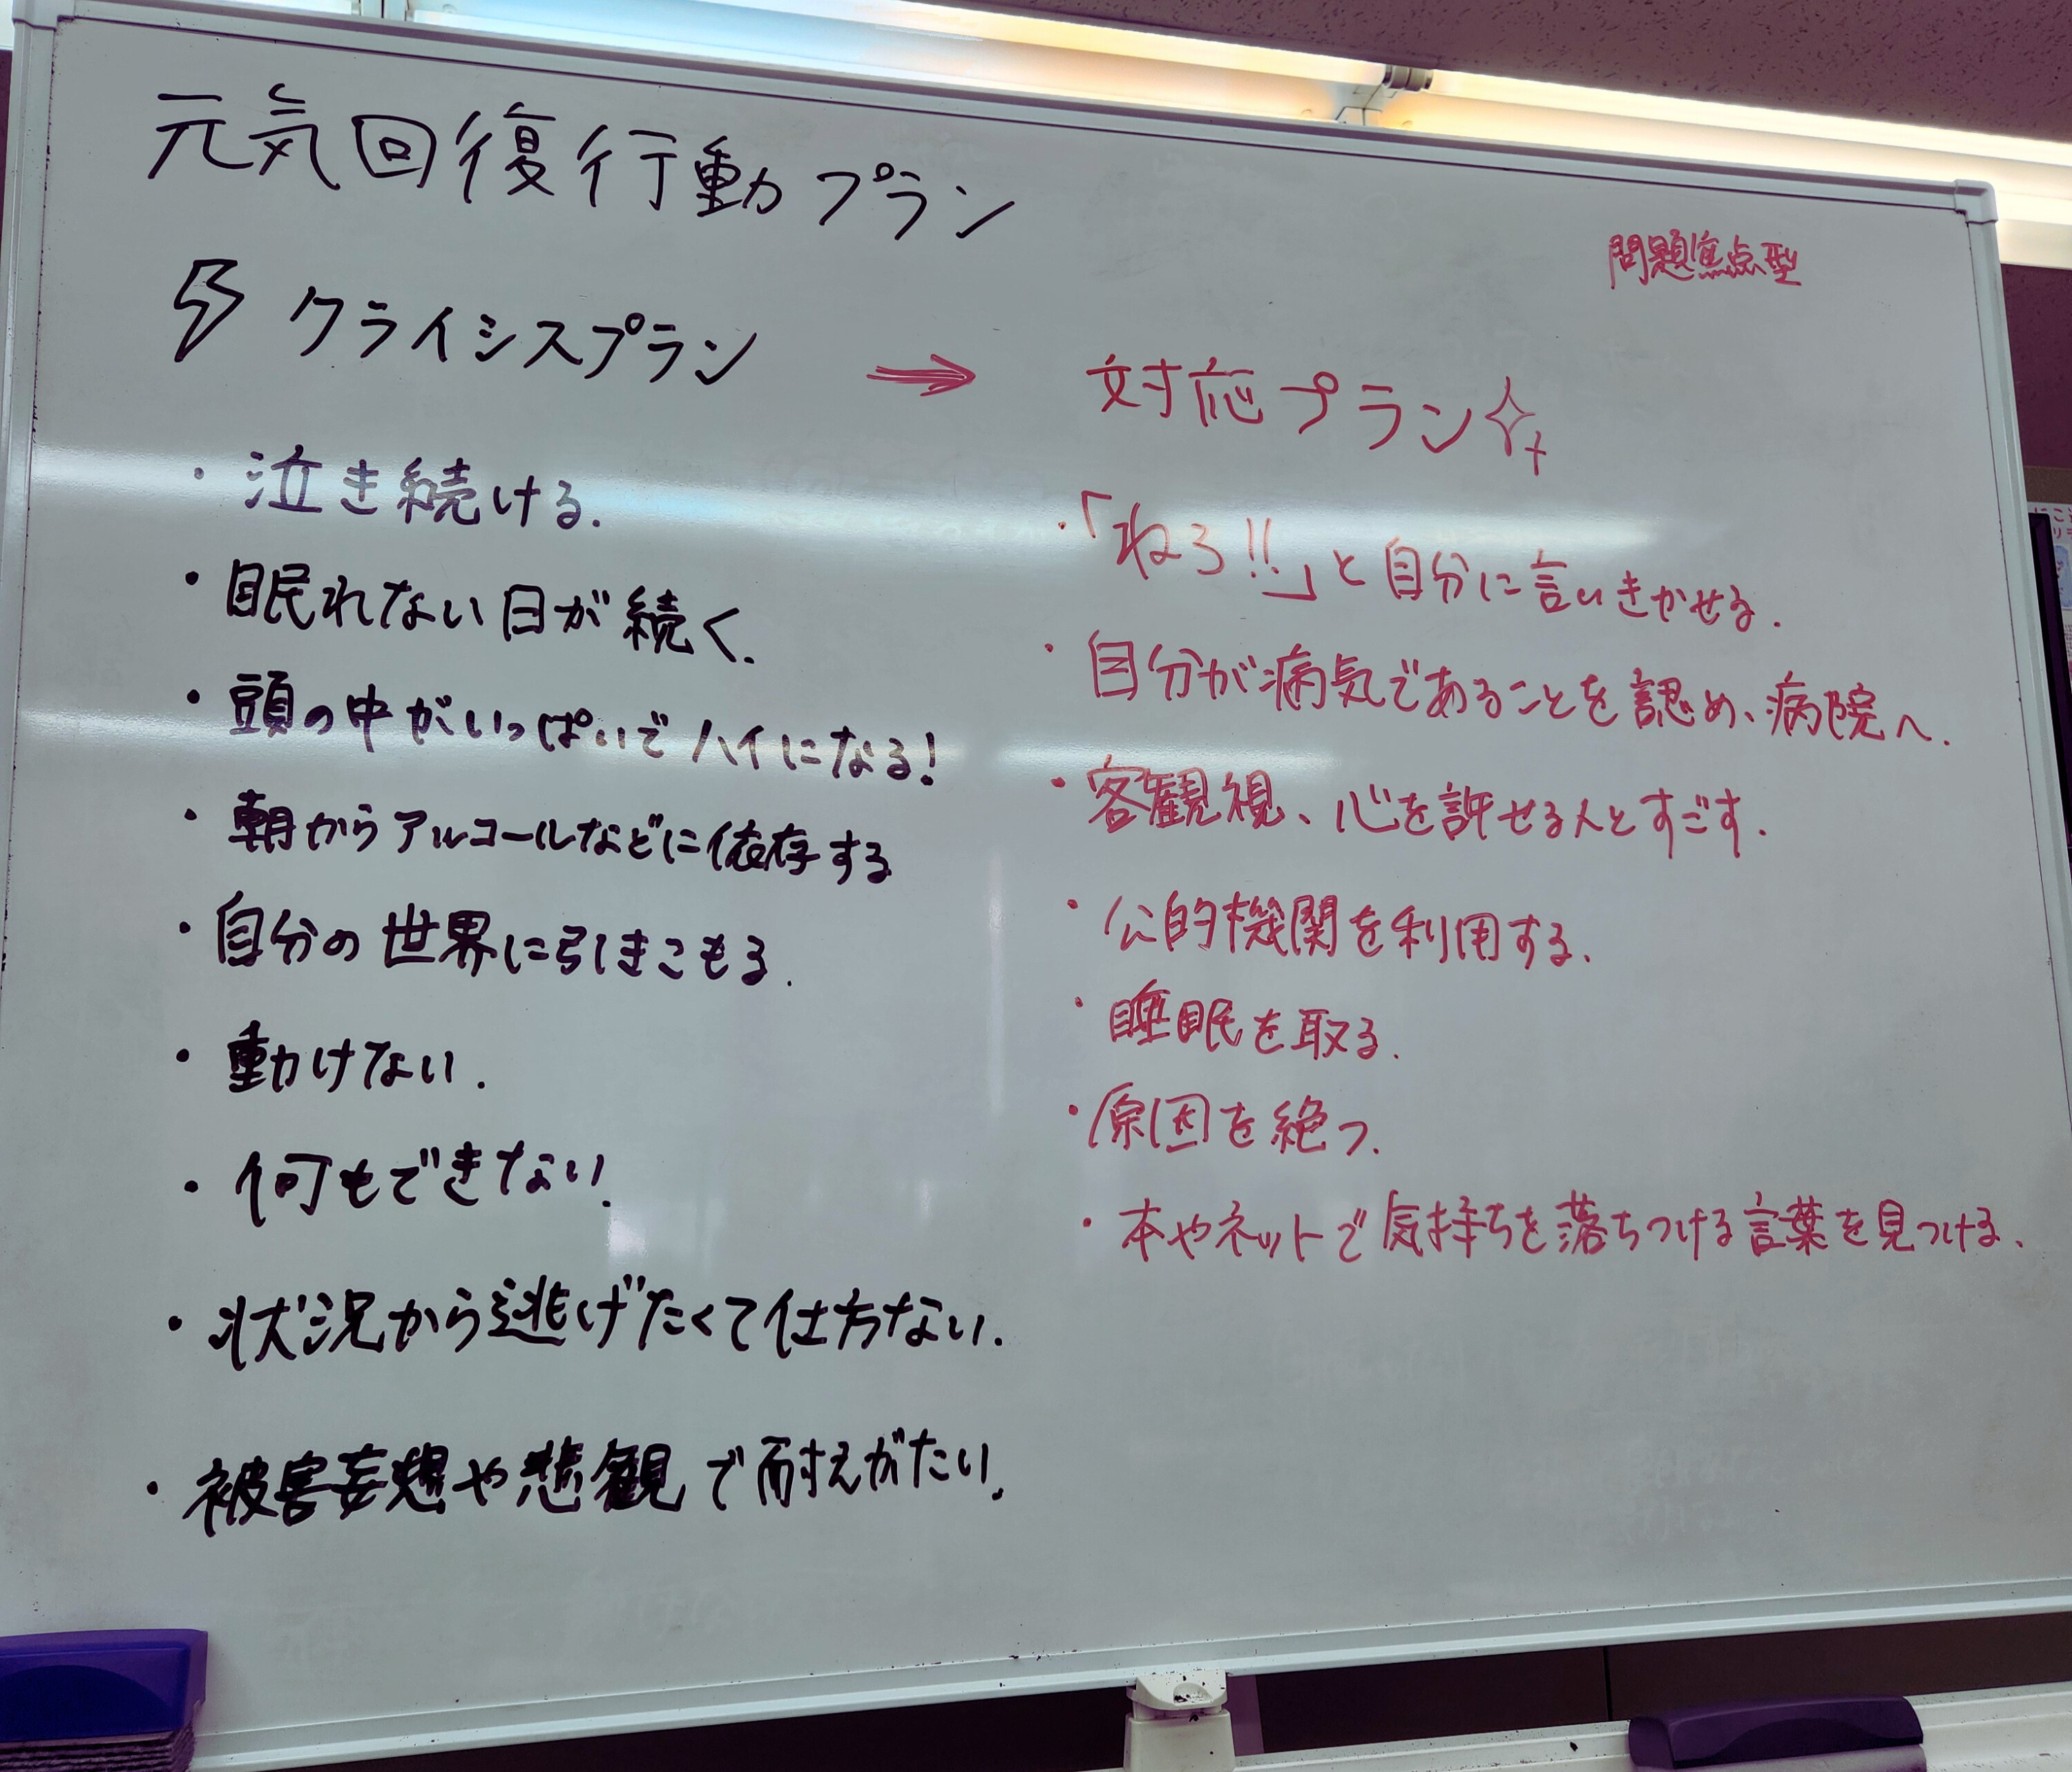 元気回復行動プラン
問題焦点型
クライシスプラン
→ 対応プラン
・泣き続ける.
・眠れない日が続く.
・頭の中がいっぱいでハイになる!
・朝からアルコールなどに依存する
・自分の世界に引きこもる.
・動けない.
・何もできない.
・状況から逃げたくて仕方ない.
・被害妄想や悲観で耐えがたい.
・「ねろ!!」と自分に言いきかせる.
・自分が病気であることを認め、病院へ.
・客観視、心を許せる人とすごす.
・公的機関を利用する.
・睡眠を取る.
・原因を絶つ.
・本やネットで気持ちを落ちつける言葉を見つける.